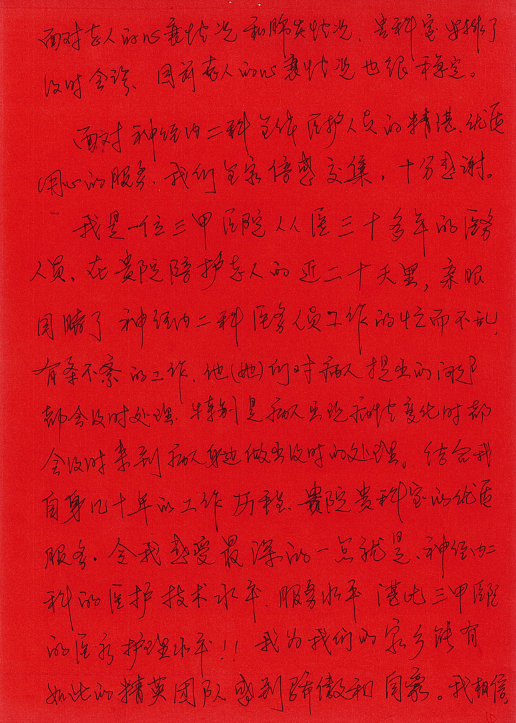 面对老人的心衰情况和肺炎情况，贵科室安排了
及时会诊，目前老人的心衰情况也很稳定。
面对神经内二科全体医护人员的精湛、优质
用心的服务，我们全家倍感交集，十分感谢。
我是一位三甲医院从医三十多年的医务
人员，在贵院陪护老人的近二十天里，亲眼
目睹了神经内二科医务人员工作的忙而不乱，
有条不紊的工作，他(她)们对病人提出的问题
都会及时处理，特别是病人出现病情变化时都
会及时来到病人身边做出及时的处理。结合我
自身几十年的工作历程，贵院贵科室的优质
服务，令我感受最深的一点就是，神经内二
科的医护技术水平，服务水平堪比三甲医院
的医疗护理水平！！我为我们的家乡能有
如此的精英团队感到骄傲和自豪。我相信